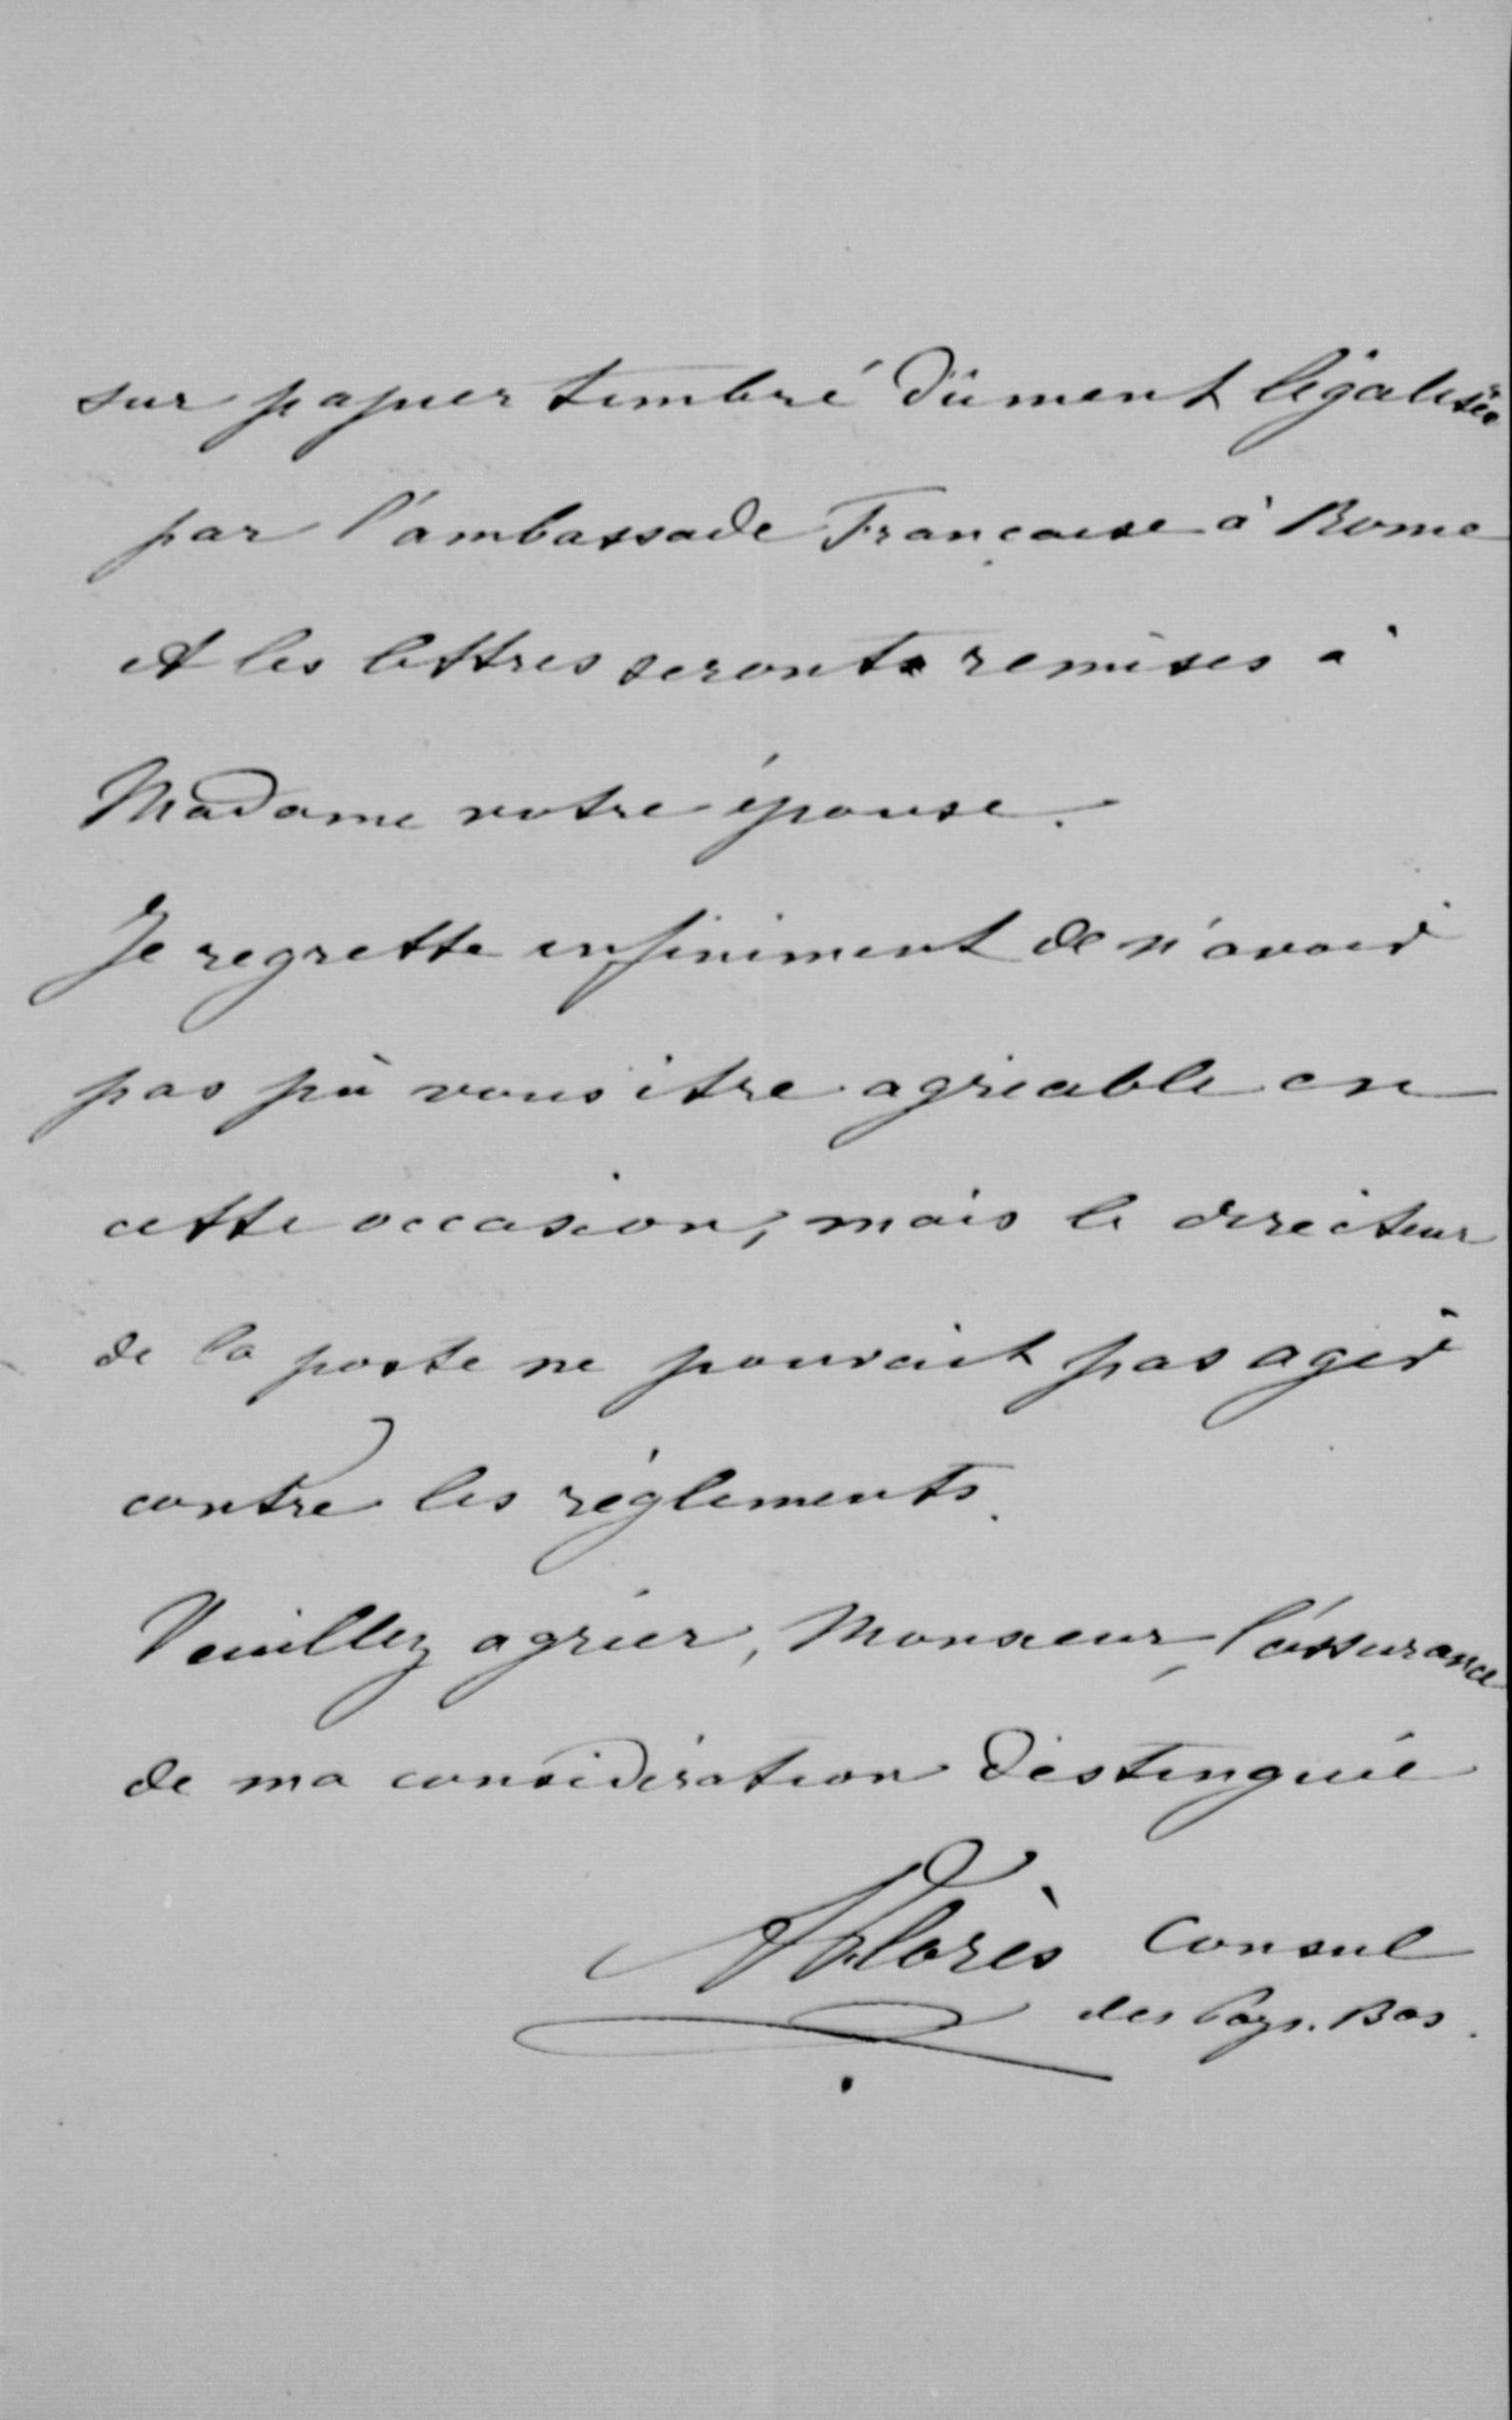 sur papier timbré dûment légalisée
par l'ambassade Française à Rome
et les lettres seront remises à
Madame votre épouse.
Je regrette infiniment de n'avoir
pas pù vous être agréable en
cette occasion, mais le directeur
de la poste ne pouvait pas agir
contre les règlements.
Veuillez agréer, Monsieur, l'assurance
de ma considération distinguée
Consul
des Pays-Bas.